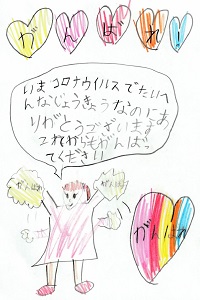 がんばれ！
いまコロナウイルスでたいへ
んなじょうきょうなのにあ
りがとうございます
これからもがんばっ
てください
がんばれ
がんばれ
がんばれ